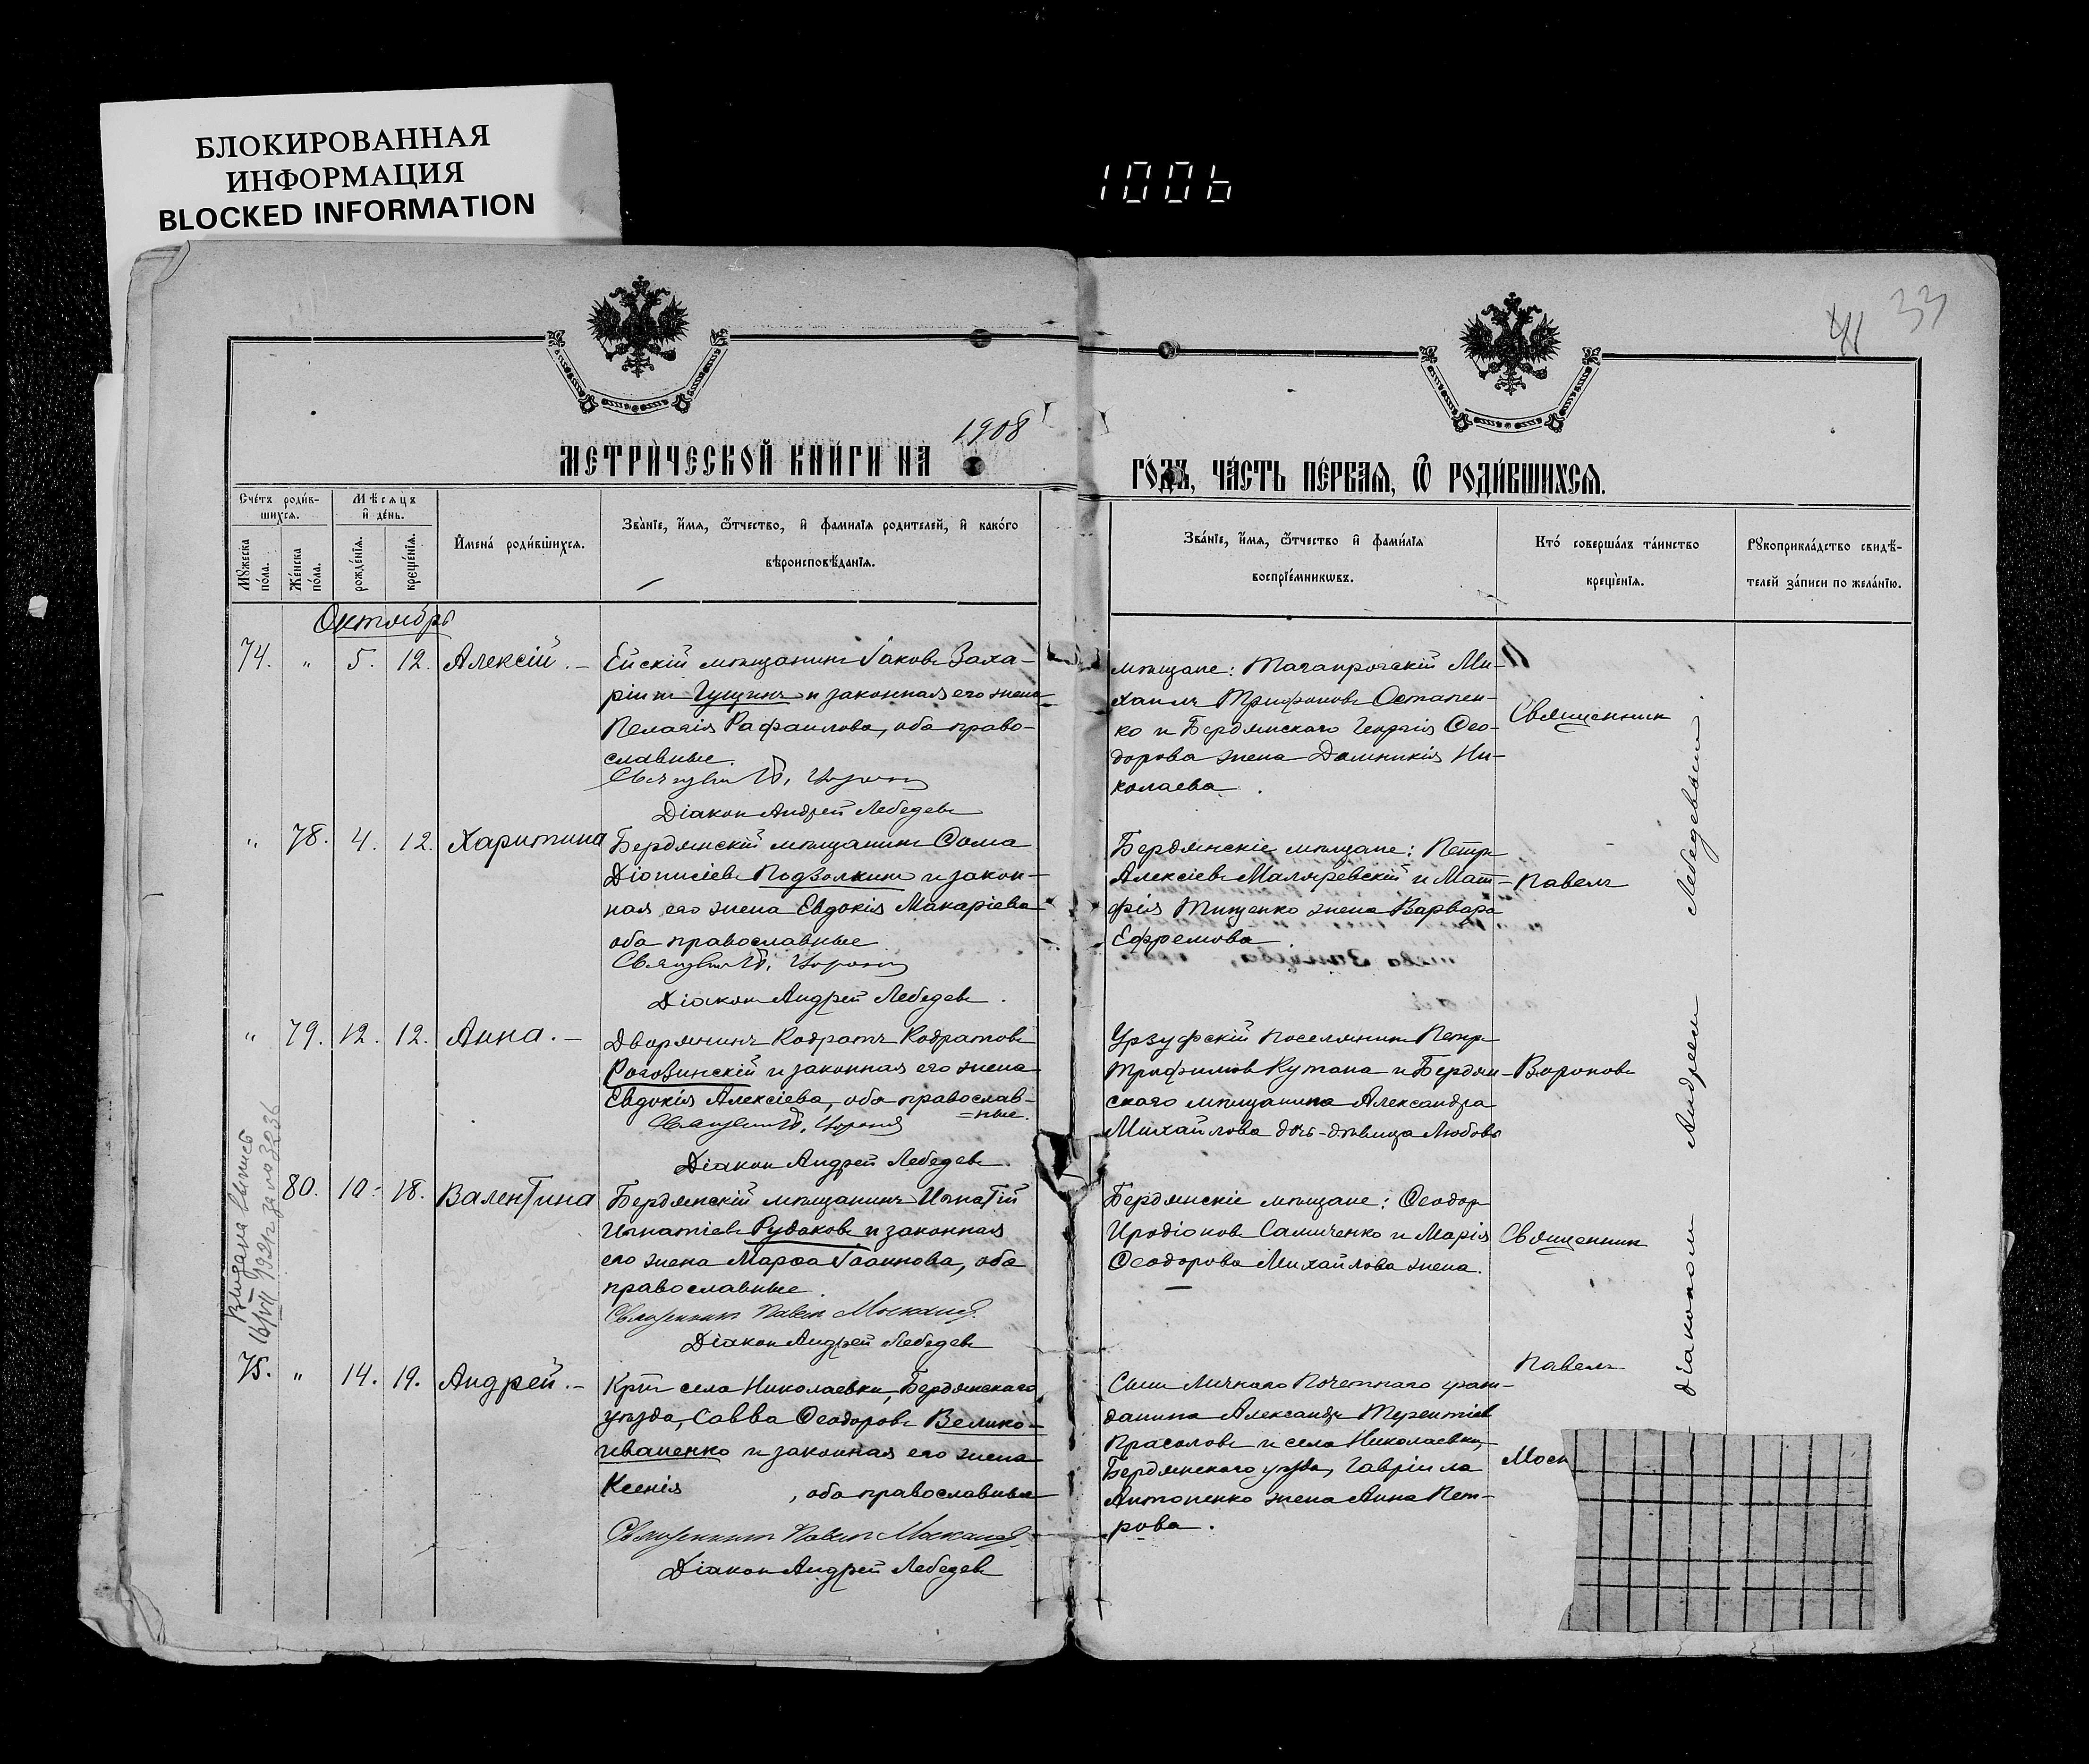 БЛОКИРОВАННАЯ
ИНФОРМАЦИЯ
BLOCKED INFORMATION
1006
41 33
1908
МЕТРИЧЕСКОЙ КНИГИ НА
ГОДЪ, ЧАСТЬ ПЕРВАЯ, Ѿ РОДИВШИХСЯ.
Счетъ родив-
шихся.
Мѣсяцъ
и день.
Мужеска
пола.
Женска
пола.
рожденія.
крещенія.
Имена родившихся.
Званіе, имя, ѿтчество, и фамилія родителей, и какого
вѣроисповѣданія.
Званіе, имя, ѿтчество и фамилія
воспріемникѡвъ.
Кто совершалъ таинство
крещенія.
Рукоприкладство свидѣ-
телей записи по желанію.
Октябрь
74. " 5. 12. Алексій. –
Ейскій мѣщанинъ Іаковъ Заха-
ріинъ Гущинъ и законная его жена
Пелагія Рафаилова, оба право-
славные.
Діаконъ Андрей Лебедевъ
мѣщане: Таганрогскій Ми-
хаилъ Трифоновъ Остапен-
ко и Бердянскаго Георгія Ѳео-
дорова жена Домникія Ни-
колаева.
Священникъ
" 78. 4. 12. Харитина
Бердянскій мѣщанинъ Ѳома
Діонисіевъ Подволкинъ и закон-
ная его жена Евдокія Макаріева
оба православные
Діаконъ Андрей Лебедевъ.
Бердянскіе мѣщане: Петръ
Алексіевъ Маляревскій и Мат-
фія Тищенко жена Варвара
Ефремова.
Павелъ
" 79. 12. 12. Анна. –
Дворянинъ Кодратъ Кодратовъ
Роговинскій и законная его жена
Евдокія Алексіева, оба православ-
=ные.
Діаконъ Андрей Лебедевъ.
Урзуфскій поселянинъ Петръ
Трифимовъ Кутана и Бердян-
скаго мѣщанина Александра
Михайлова дочь-дѣвица Любовь
Вороновъ
80. 10. 18. Валентина
Бердянскій мѣщанинъ Игнатій
Игнатіевъ Рудаковъ и законная
его жена Марѳа Іоаннова, оба
православные.
Священникъ Павелъ
Діаконъ Андрей Лебедевъ
Бердянскіе мѣщане: Ѳеодоръ
Иродіоновъ Самиченко и Марія
Ѳеодорова Михайлова жена.
Священникъ
Выдана выпись
16/VII 1921г за №3236
75. " 14. 19. Андрей. –
Крнъ села Николаевки, Бердянскаго
уѣзда, Савва Ѳеодоровъ Велико-
иваненко и законная его жена
Ксенія , оба православные
Священникъ Павелъ
Діаконъ Андрей Лебедевъ
Сынъ личнаго почетнаго граж-
данина Александръ Терентіевъ
Прасоловъ и села Николаевки,
Бердянскаго уѣзда, Гавріила
Антоненко жена Анна Пет-
рова.
Павелъ
Моск
діакономъ Андреемъ Лебедевымъ.